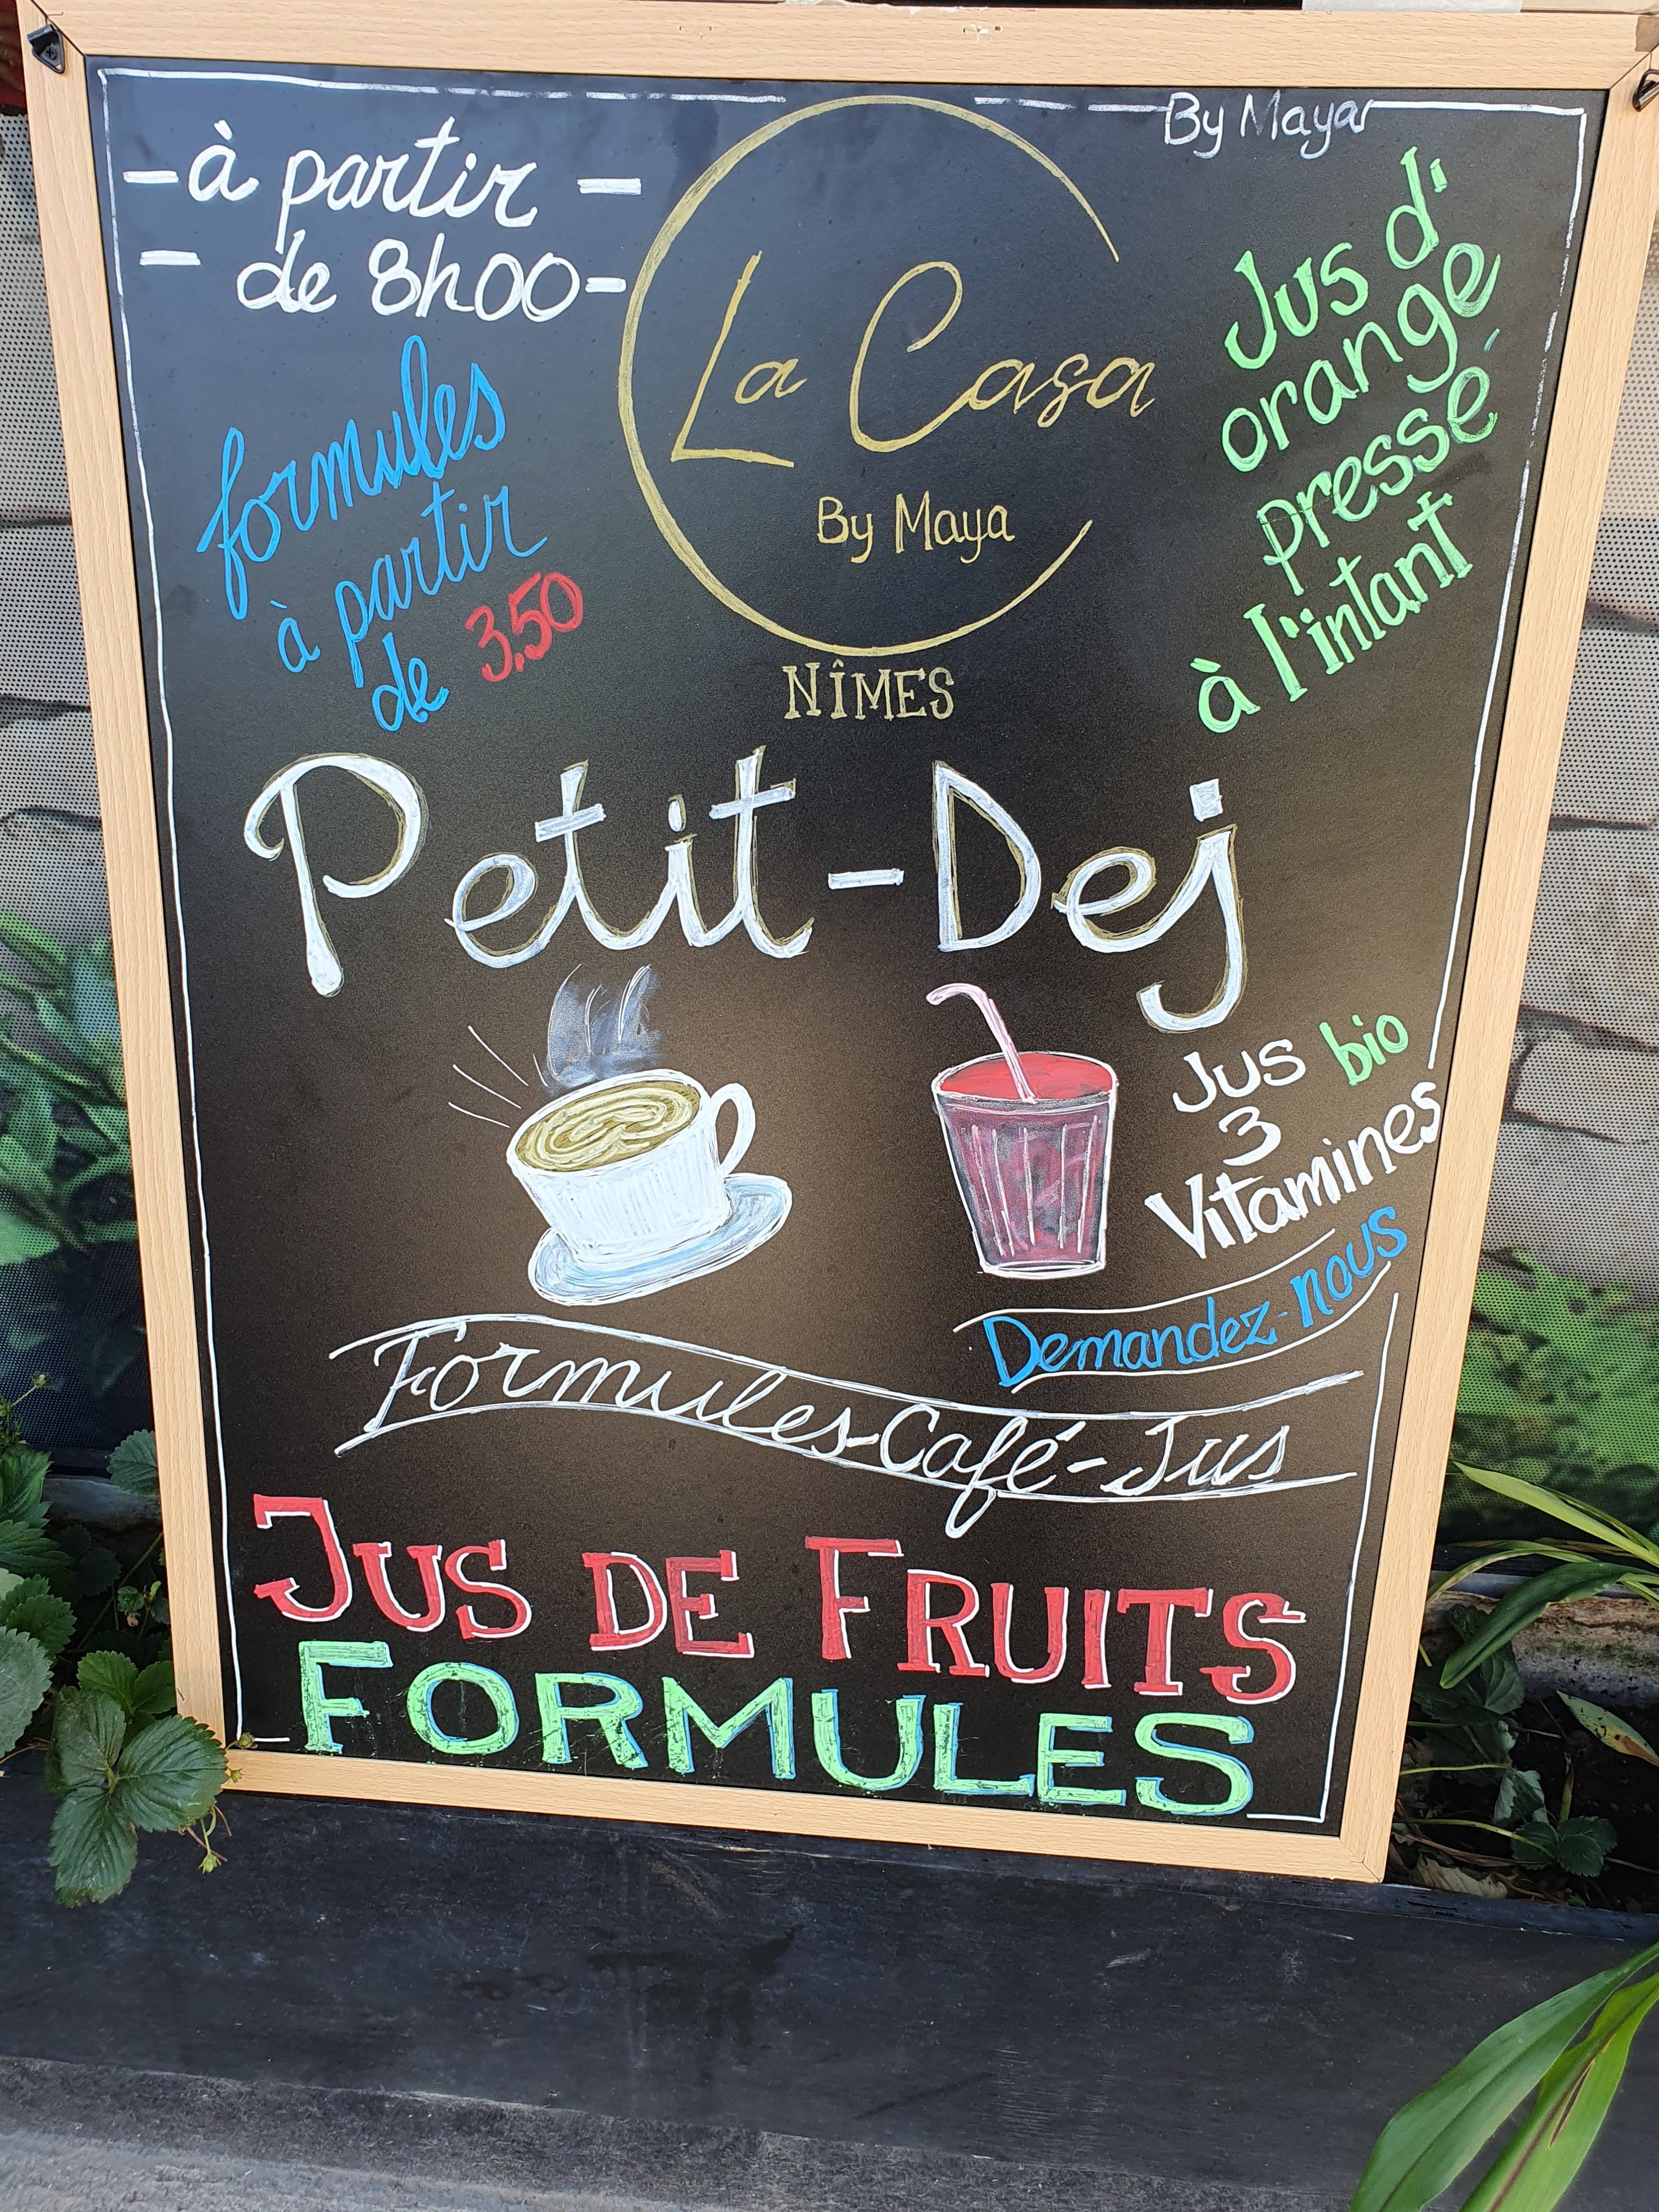 By Mayar
-à partir-
-de 8h00-
formules
à partir
de 3.50
La Casa
By Maya
NÎMES
Jus d'
orange
pressé
à l'intant
Petit-Dej
Jus bio
3
Vitamines
Demandez-nous
Formules-Café-Jus
JUS DE FRUITS
FORMULES